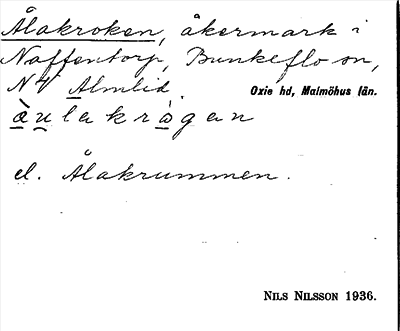 Ålakroken, åkermark i
Naffentorp, Bunkeflo sn,
NV Almlid. Oxie hd, Malmöhus län.
àu̱lakràgan
el. Ålakrummen.
NILS NILSSON 1936.